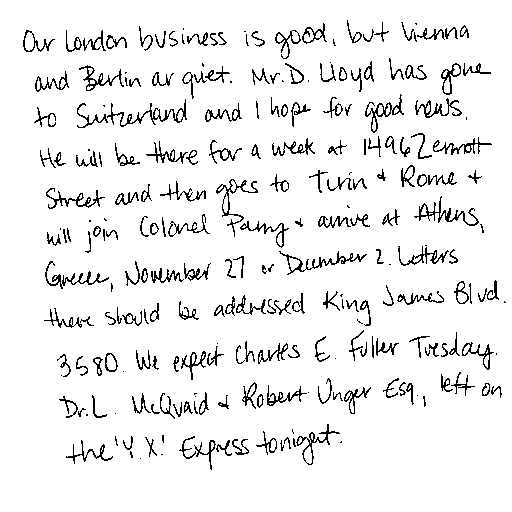 Our London business is good, but Vienna
and Berlin ar quiet. Mr. D. Lloyd has gone
to Suitzerland and I hope for good news.
He will be there for a week at 1496 Zermott
Street and then goes to Turin & Rome &
will join Colonel Parry & arrive at Athens,
Greece, November 27 or December 2. Letters
there should be addressed King James Blvd.
3580. We expect Charles E. Fuller Tuesday.
Dr. L. McQuaid & Robert Unger Esq., left on
the 'Y. X.' Express tonight.